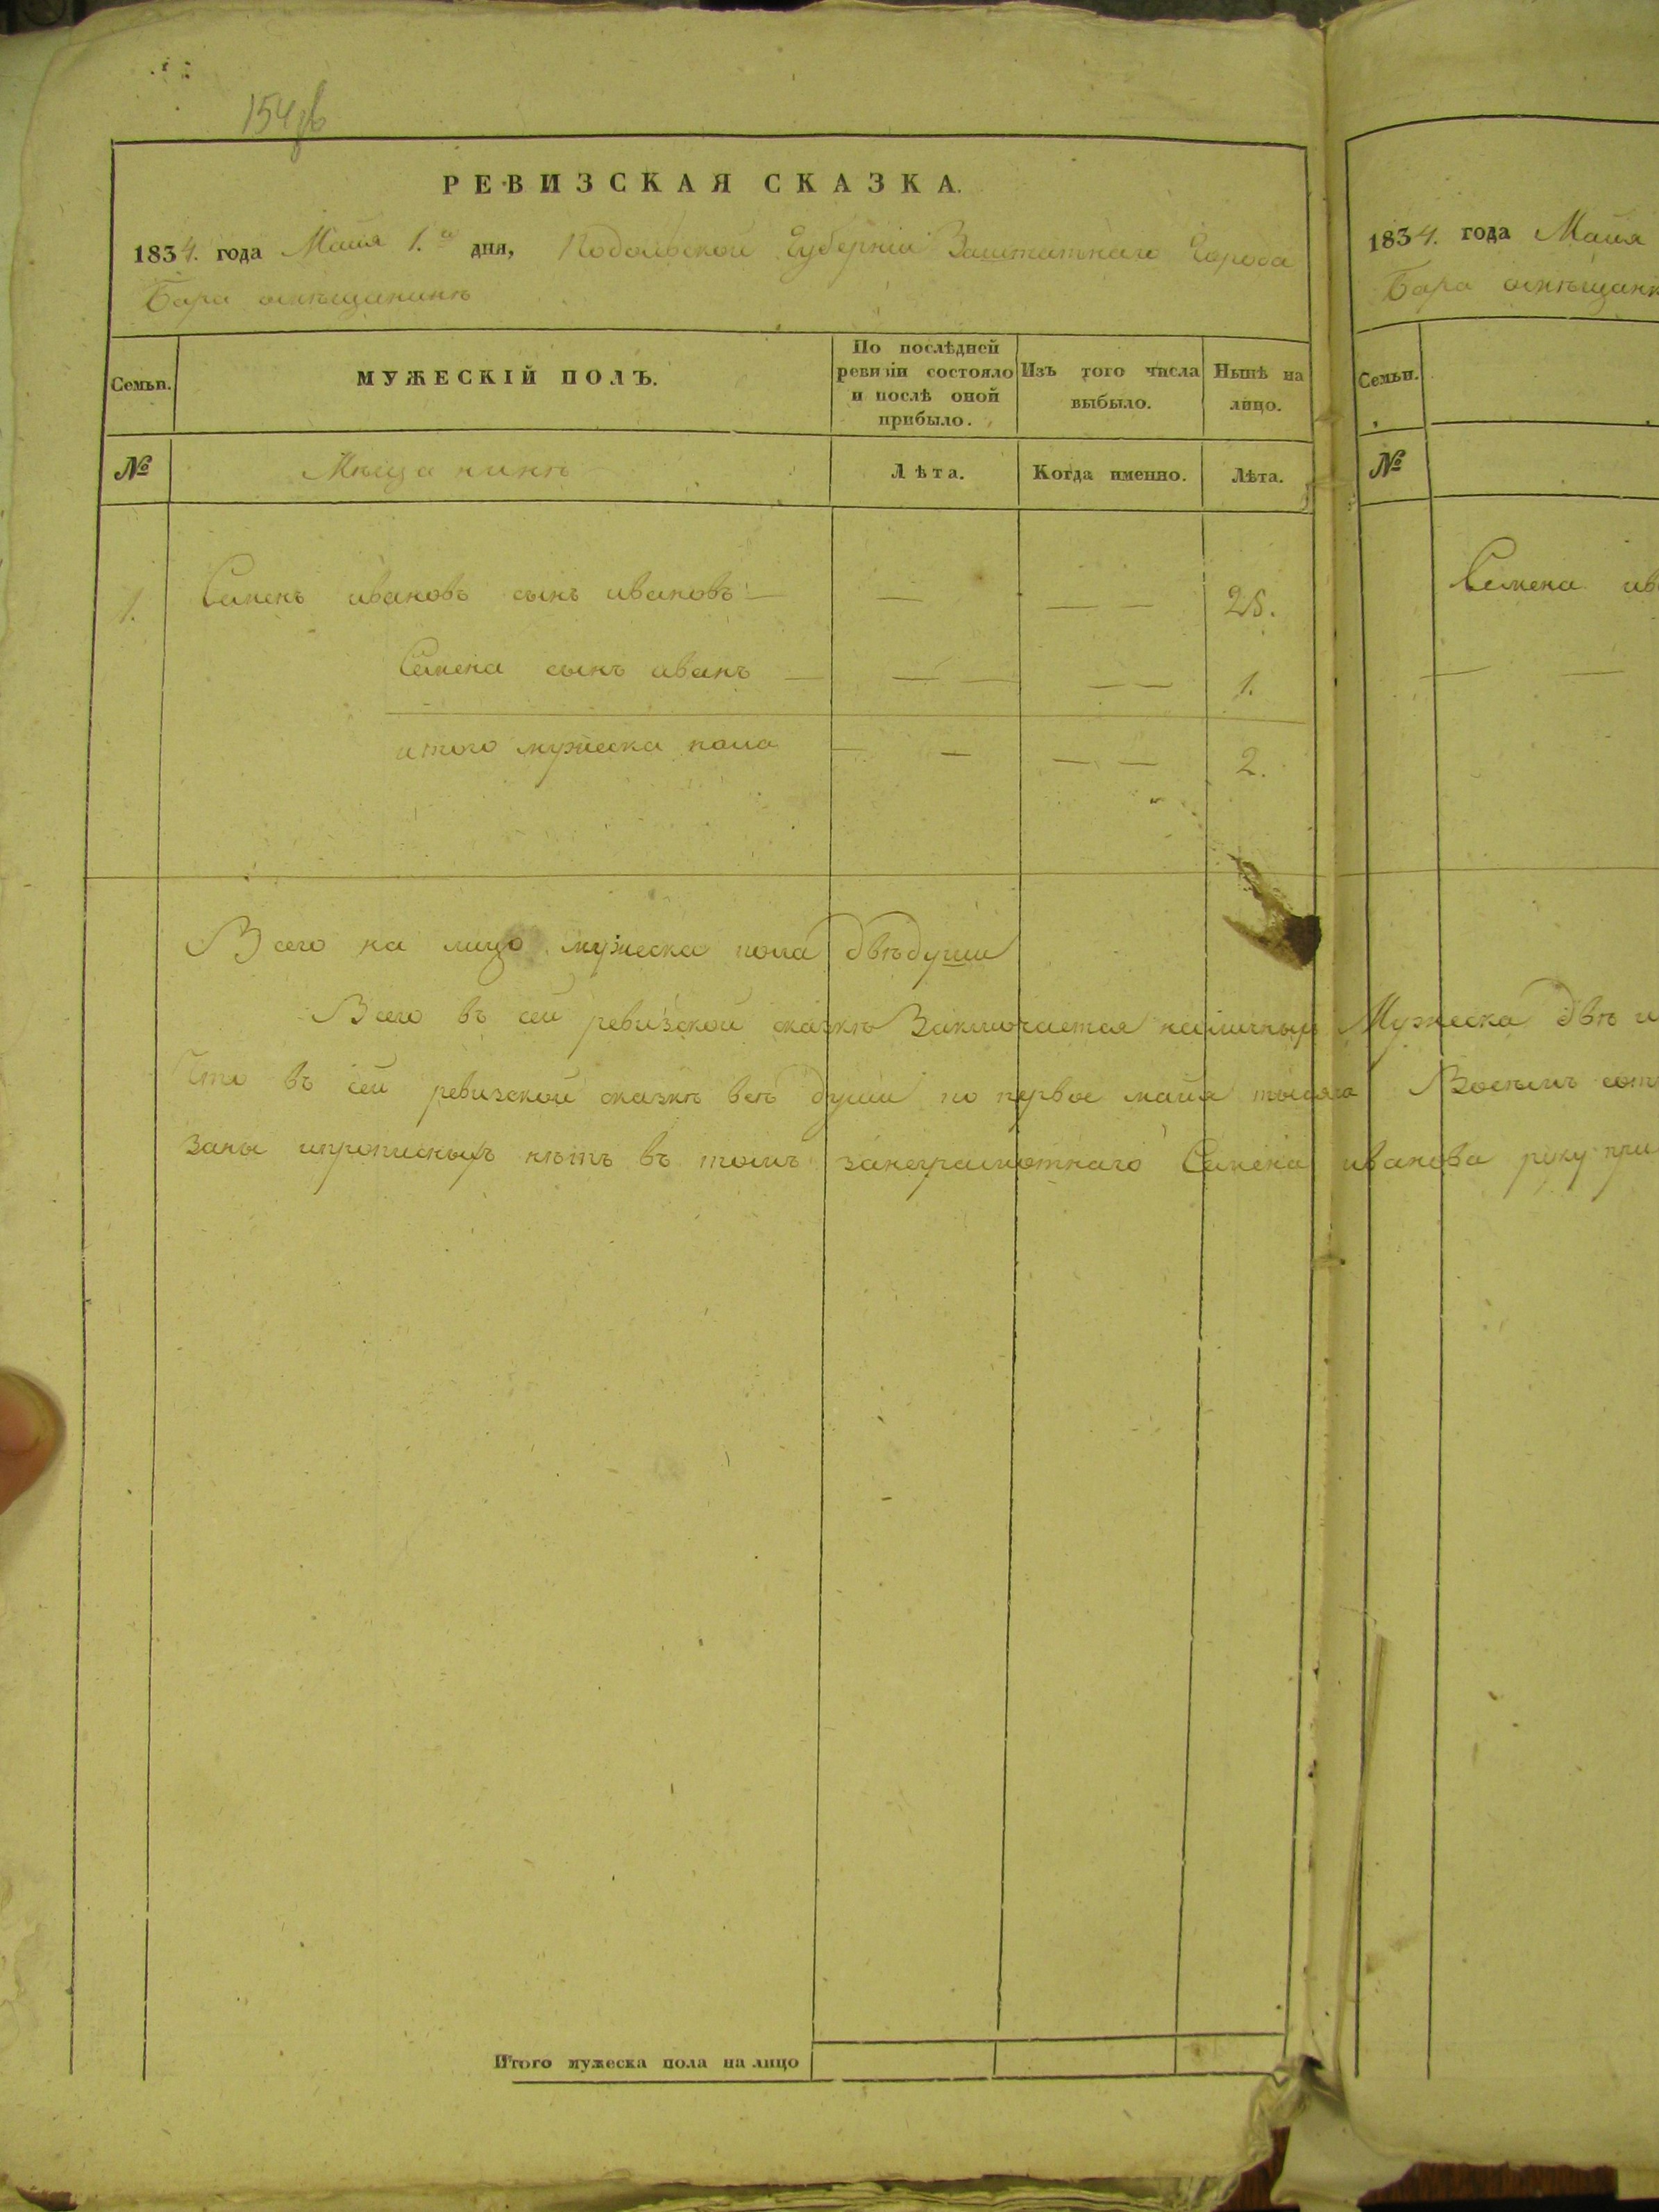 154
РЕВИЗСКАЯ СКАЗКА.
1834. года Маия 1.го дня, Подольской Губерніи Заштатнаго Города
Бара омѣщанинѣ
Семьи.
МУЖЕСКІЙ ПОЛЪ.
По послѣдней ревизіи состояло и послѣ оной прибыло.
Изъ того числа выбыло.
Нынѣ на лицо.
№
Мѣщанинъ
Лѣта.
Когда именно.
Лѣта.
1. Семенъ ивановъ сынъ ивановъ — — — — 25.
Семена сынъ иванъ — — — — — 1.
итого мужеска пола — — — — 2.
Всего на лицо мужеска пола двѣ души
Всего въ сей ревизской сказкѣ Заключается наличныхъ Мужеска двѣ и
Что въ сей ревизской сказкѣ всѣ души по первое маия тысяча Восемь сот
заны ипрописныхъ нѣтъ въ томъ занеграмотнаго Семена иванова руку при
Итого мужеска пола на лицо
1834. года Маия
Бара омѣщани
Семьи.
№
Семена ив
— —